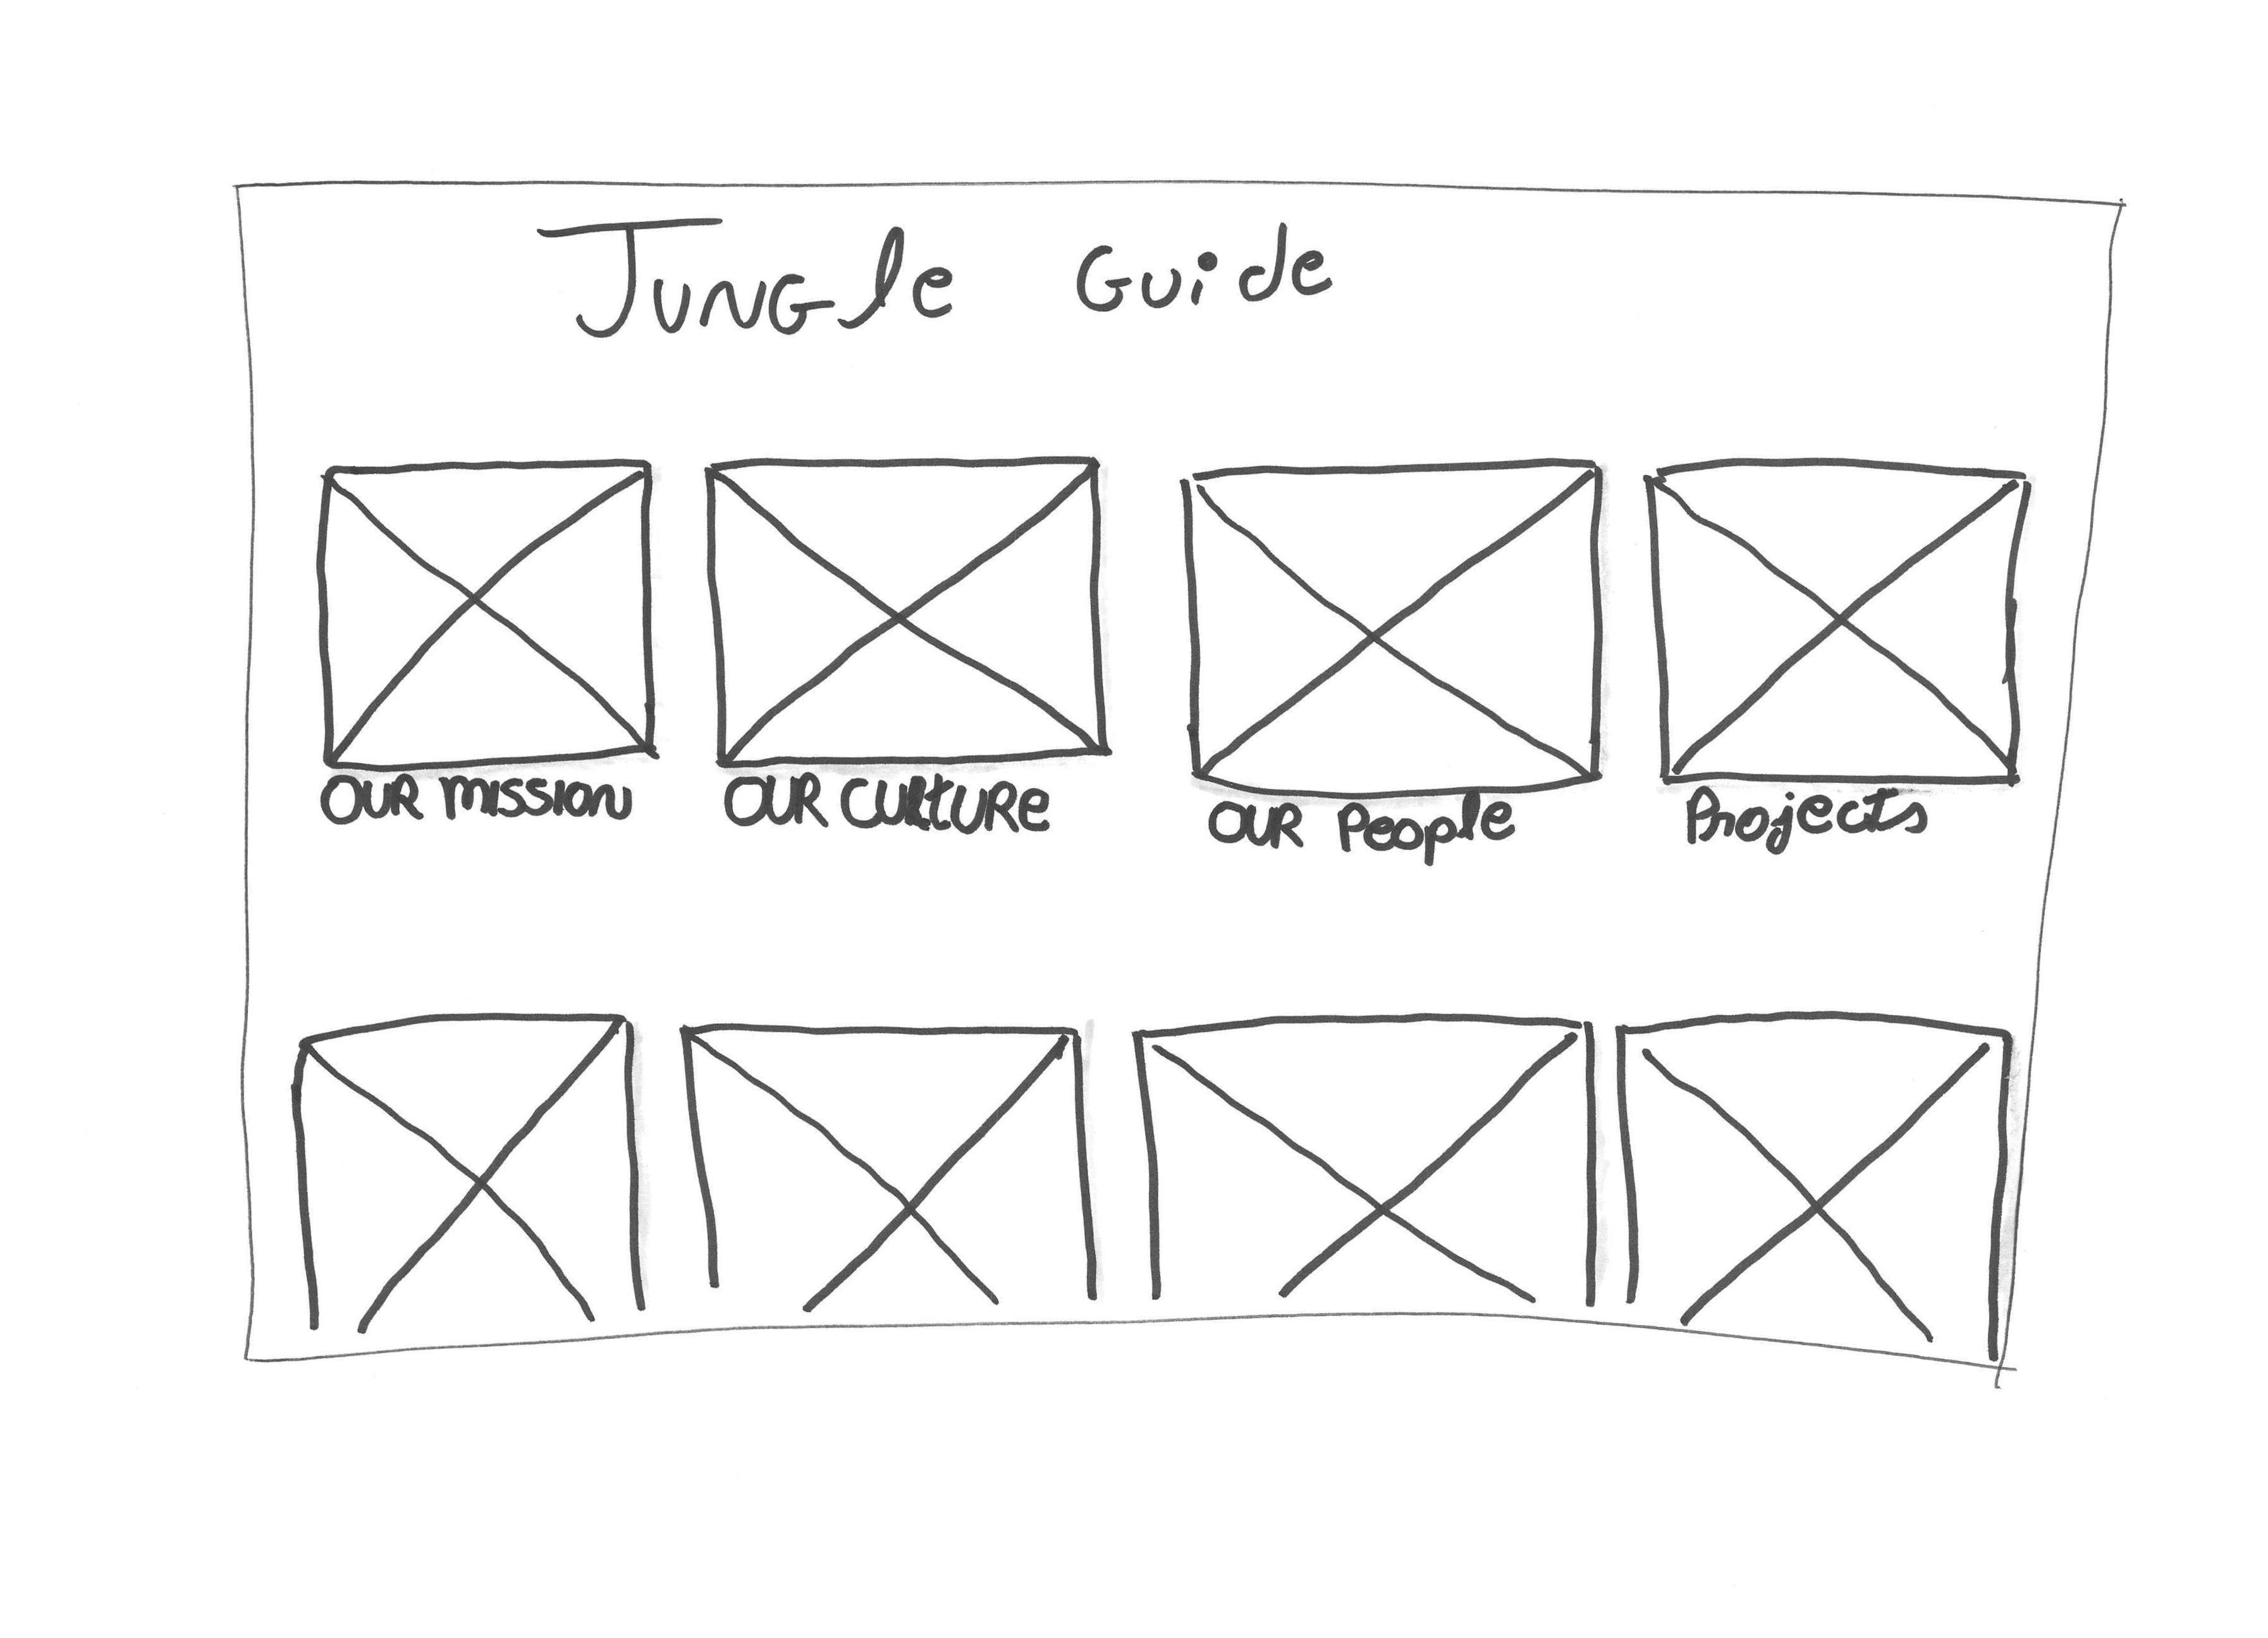 Jungle Guide
OUR mission
OUR CULTURE
OUR People
Projects